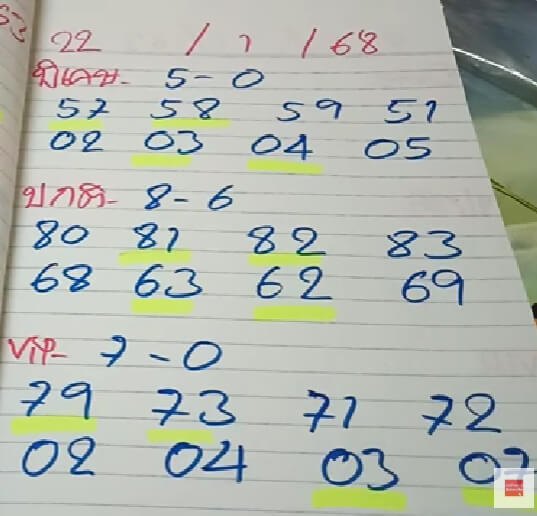 22 / 1 / 68
พิเศษ- 5-0
57 58 59 51
02 03 04 05
ปกติ- 8-6
80 81 82 83
68 63 62 69
VIP- 7-0
79 73 71 72
02 04 03 07